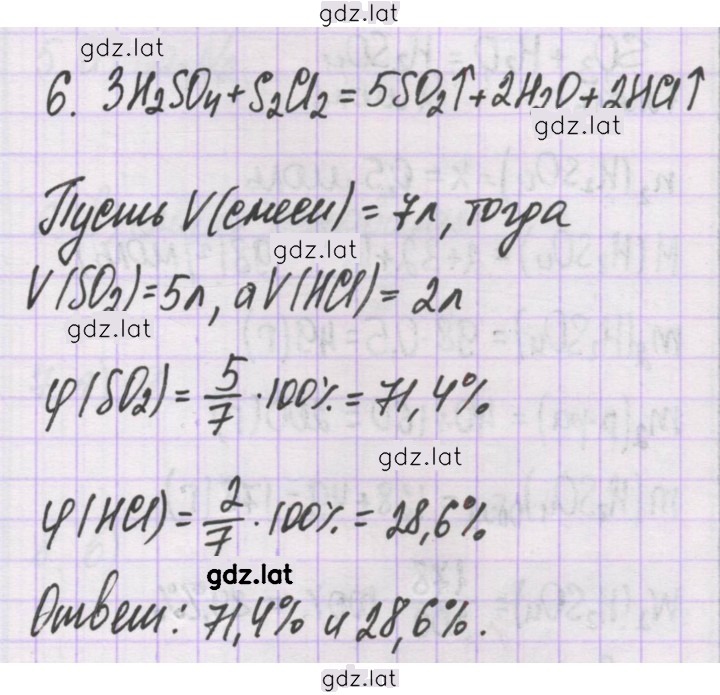 gdz.lat
gdz.lat
6. 3H₂SO₄ + S₂Cl₂ = 5SO₂↑ + 2H₂O + 2HCl↑
gdz.lat
Пусть V(смеси) = 7л, тогда
gdz.lat
V(SO₂) = 5л, а V(HCl) = 2л
gdz.lat
φ(SO₂) = 5/7 · 100% = 71,4%
gdz.lat
φ(HCl) = 2/7 · 100% = 28,6%
gdz.lat
Ответ: 71,4% и 28,6%.
gdz.lat